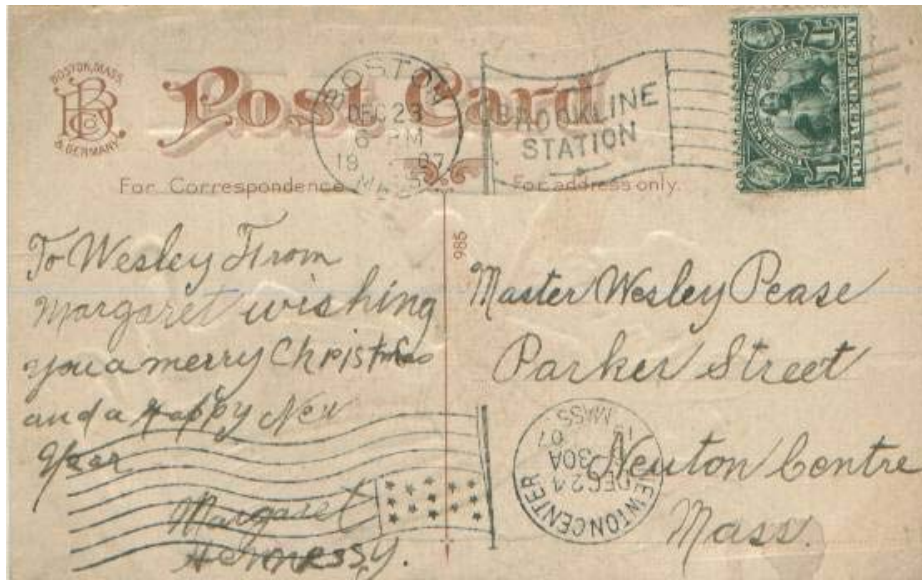 BOSTON, MASS.
B Co
& GERMANY.
Post Card
BOSTON
DEC 23
6 PM
19 07
MASS.
BROOKLINE
STATION
1 1
POSTAGE ONE CENT
For Correspondence
For address only.
985
To Wesley From
Margaret wishing
you a merry Christmas
and a Happy New
Year
Margaret
Hennessy.
Master Wesley Pease
Parker Street
Newton Centre
Mass.
NEWTON CENTER
DEC 24
30A
07
MASS